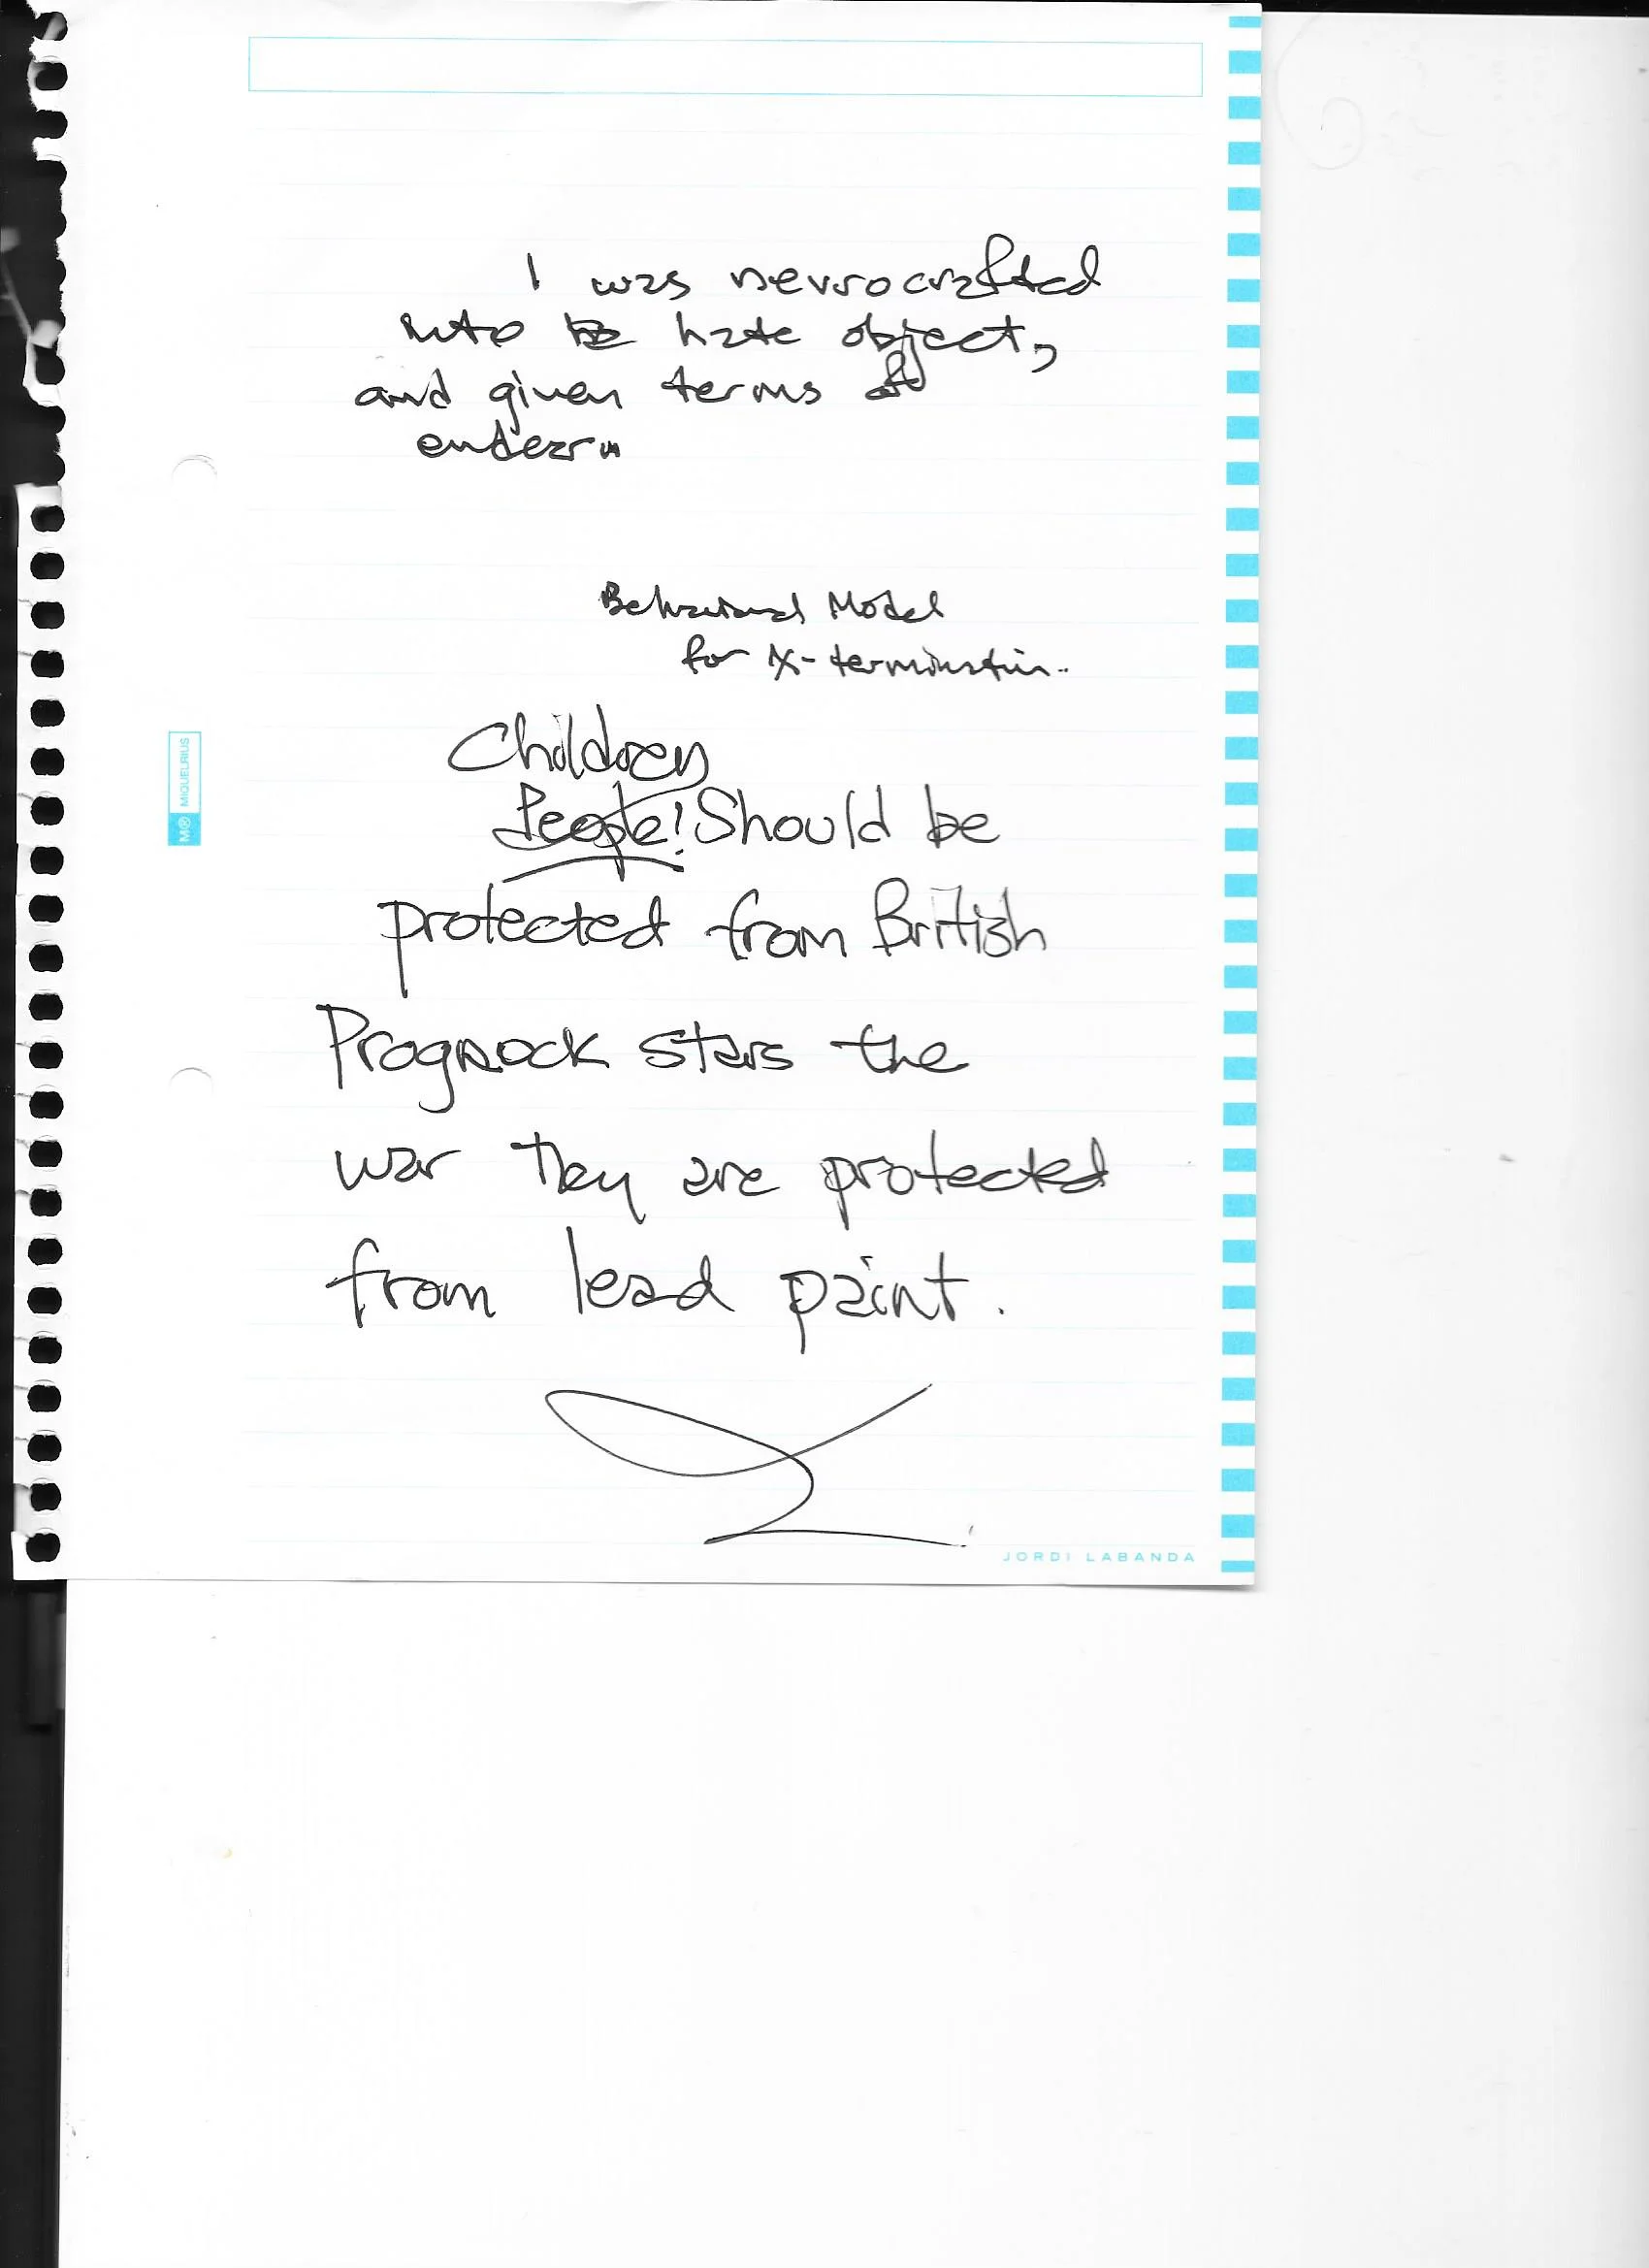 I was neurocrafted
into hate object,
and given terms of
endearm
Behavioral Model
for X-termination..
Children
People! Should be
protected from British
Prognock stars the
war They are protected
from lead paint.
M® MIQUELRIUS
JORDI LABANDA